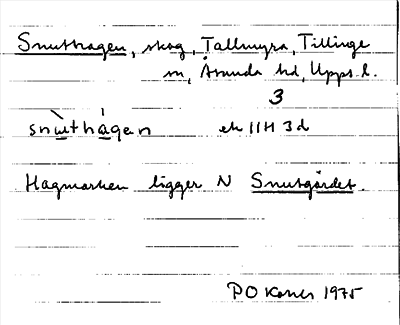 Snuthagen, skog, Tallmyra, Tillinge
sn, Åsunda hd, Upps. l.
3
snùthágen ek 11H 3d
Hagmarken ligger N Snutgärdet.
PO 1975